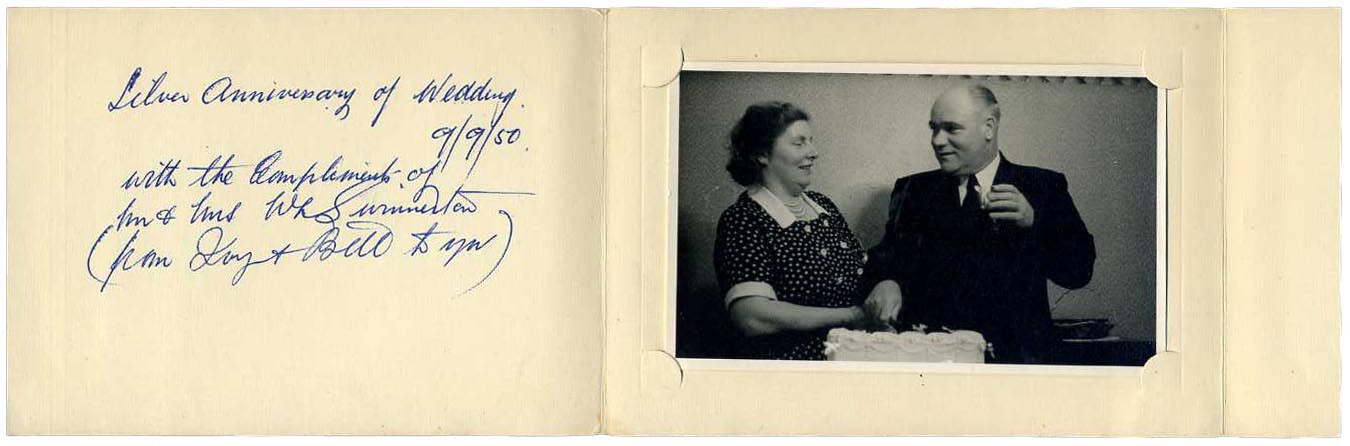 Silver Anniversary of Wedding.
9/9/50.
with the Compliments of
Mr & Mrs Summerton
(from + Bill to you)